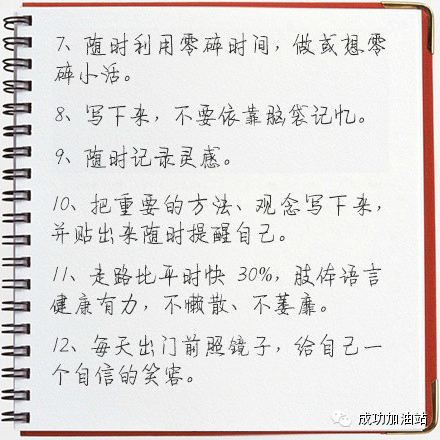 7、随时利用零碎时间，做或想零
碎小活。
8、写下来，不要依靠脑袋记忆。
9、随时记录灵感。
10、把重要的方法、观念写下来，
并贴出来随时提醒自己。
11、走路比平时快 30%，肢体语言
健康有力，不懒散、不萎靡。
12、每天出门前照镜子，给自己一
个自信的笑容。
成功加油站